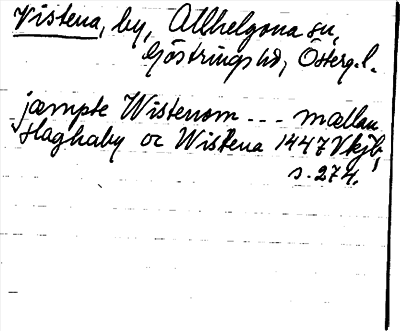 Vistena, by, Allhelgona sn,
Göstrings hd, Österg.l.
jæmpte Wistenom --- mællan
Haghaby oc Wistena 1447 Vkjb,
s. 274.